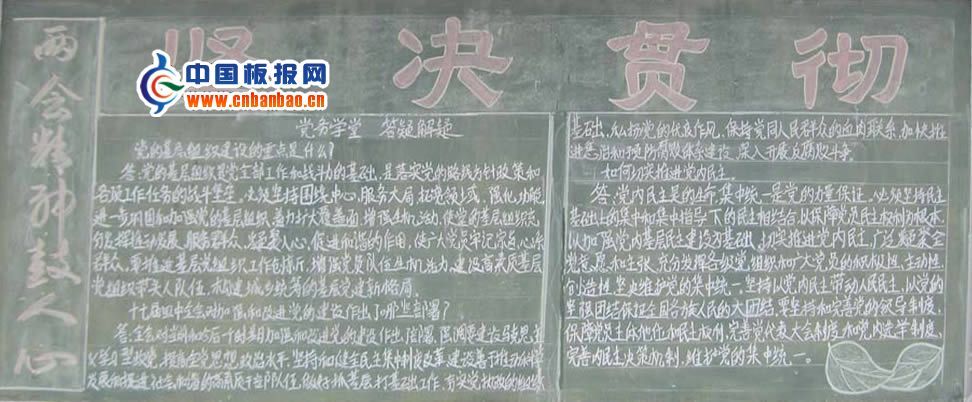 两会精神鼓人心
坚决贯彻
中国板报网
www.cnbanbao.cn
党务学堂 答疑解疑
党的基层组织建设的重点是什么?
答:党的基层组织是党全部工作和战斗力的基础,是落实党的路线方针政策和
各项工作任务的战斗堡垒。必须坚持围绕中心,服务大局,拓宽领域,强化功能,
进一步巩固和加强党的基层组织,着力扩大覆盖面,增强生机活力,使党的基层组织充
分发挥推动发展,服务群众,凝聚人心,促进和谐的作用,使广大党员牢记宗旨,心系
群众,要推进基层党组织工作创新,增强党员队伍生机活力,建设高素质基层
党组织带头人队伍,构建城乡统筹的基层党建新格局。
十七届四中全会对加强和改进党的建设作出了哪些部署?
答:全会对当前和今后一个时期加强和改进党的建设作出部署,强调要建设马克思主
义学习型政党,提高全党思想政治水平,坚持和健全民主集中制
发展和促进社会和谐的高素质干部队伍,做好抓基层打基础工作,夯实党执政的组织
基础,弘扬党的优良作风,保持党同人民群众的血肉联系,加快推
进惩治和预防腐败体系建设,深入开展反腐败斗争。
如何切实推进党内民主。
答:党内民主是党的生命,集中统一是党的力量保证。必须坚持民主
基础上的集中和集中指导下的民主相结合,以保障党员民主权利为根本,
以加强党内基层民主建设为基础,切实推进党内民主,广泛凝聚全
党意愿和主张,充分发挥各级党组织和广大党员的积极性、主动性、
创造性,坚决维护党的集中统一。坚持以党内民主带动人民民主,以党的
坚强团结保证全国各族人民的大团结,要坚持和完善党的领导制度,
保障党员主体地位和民主权利,完善党代表大会制度和党内选举制度,
完善党内民主决策机制,维护党的集中统一。